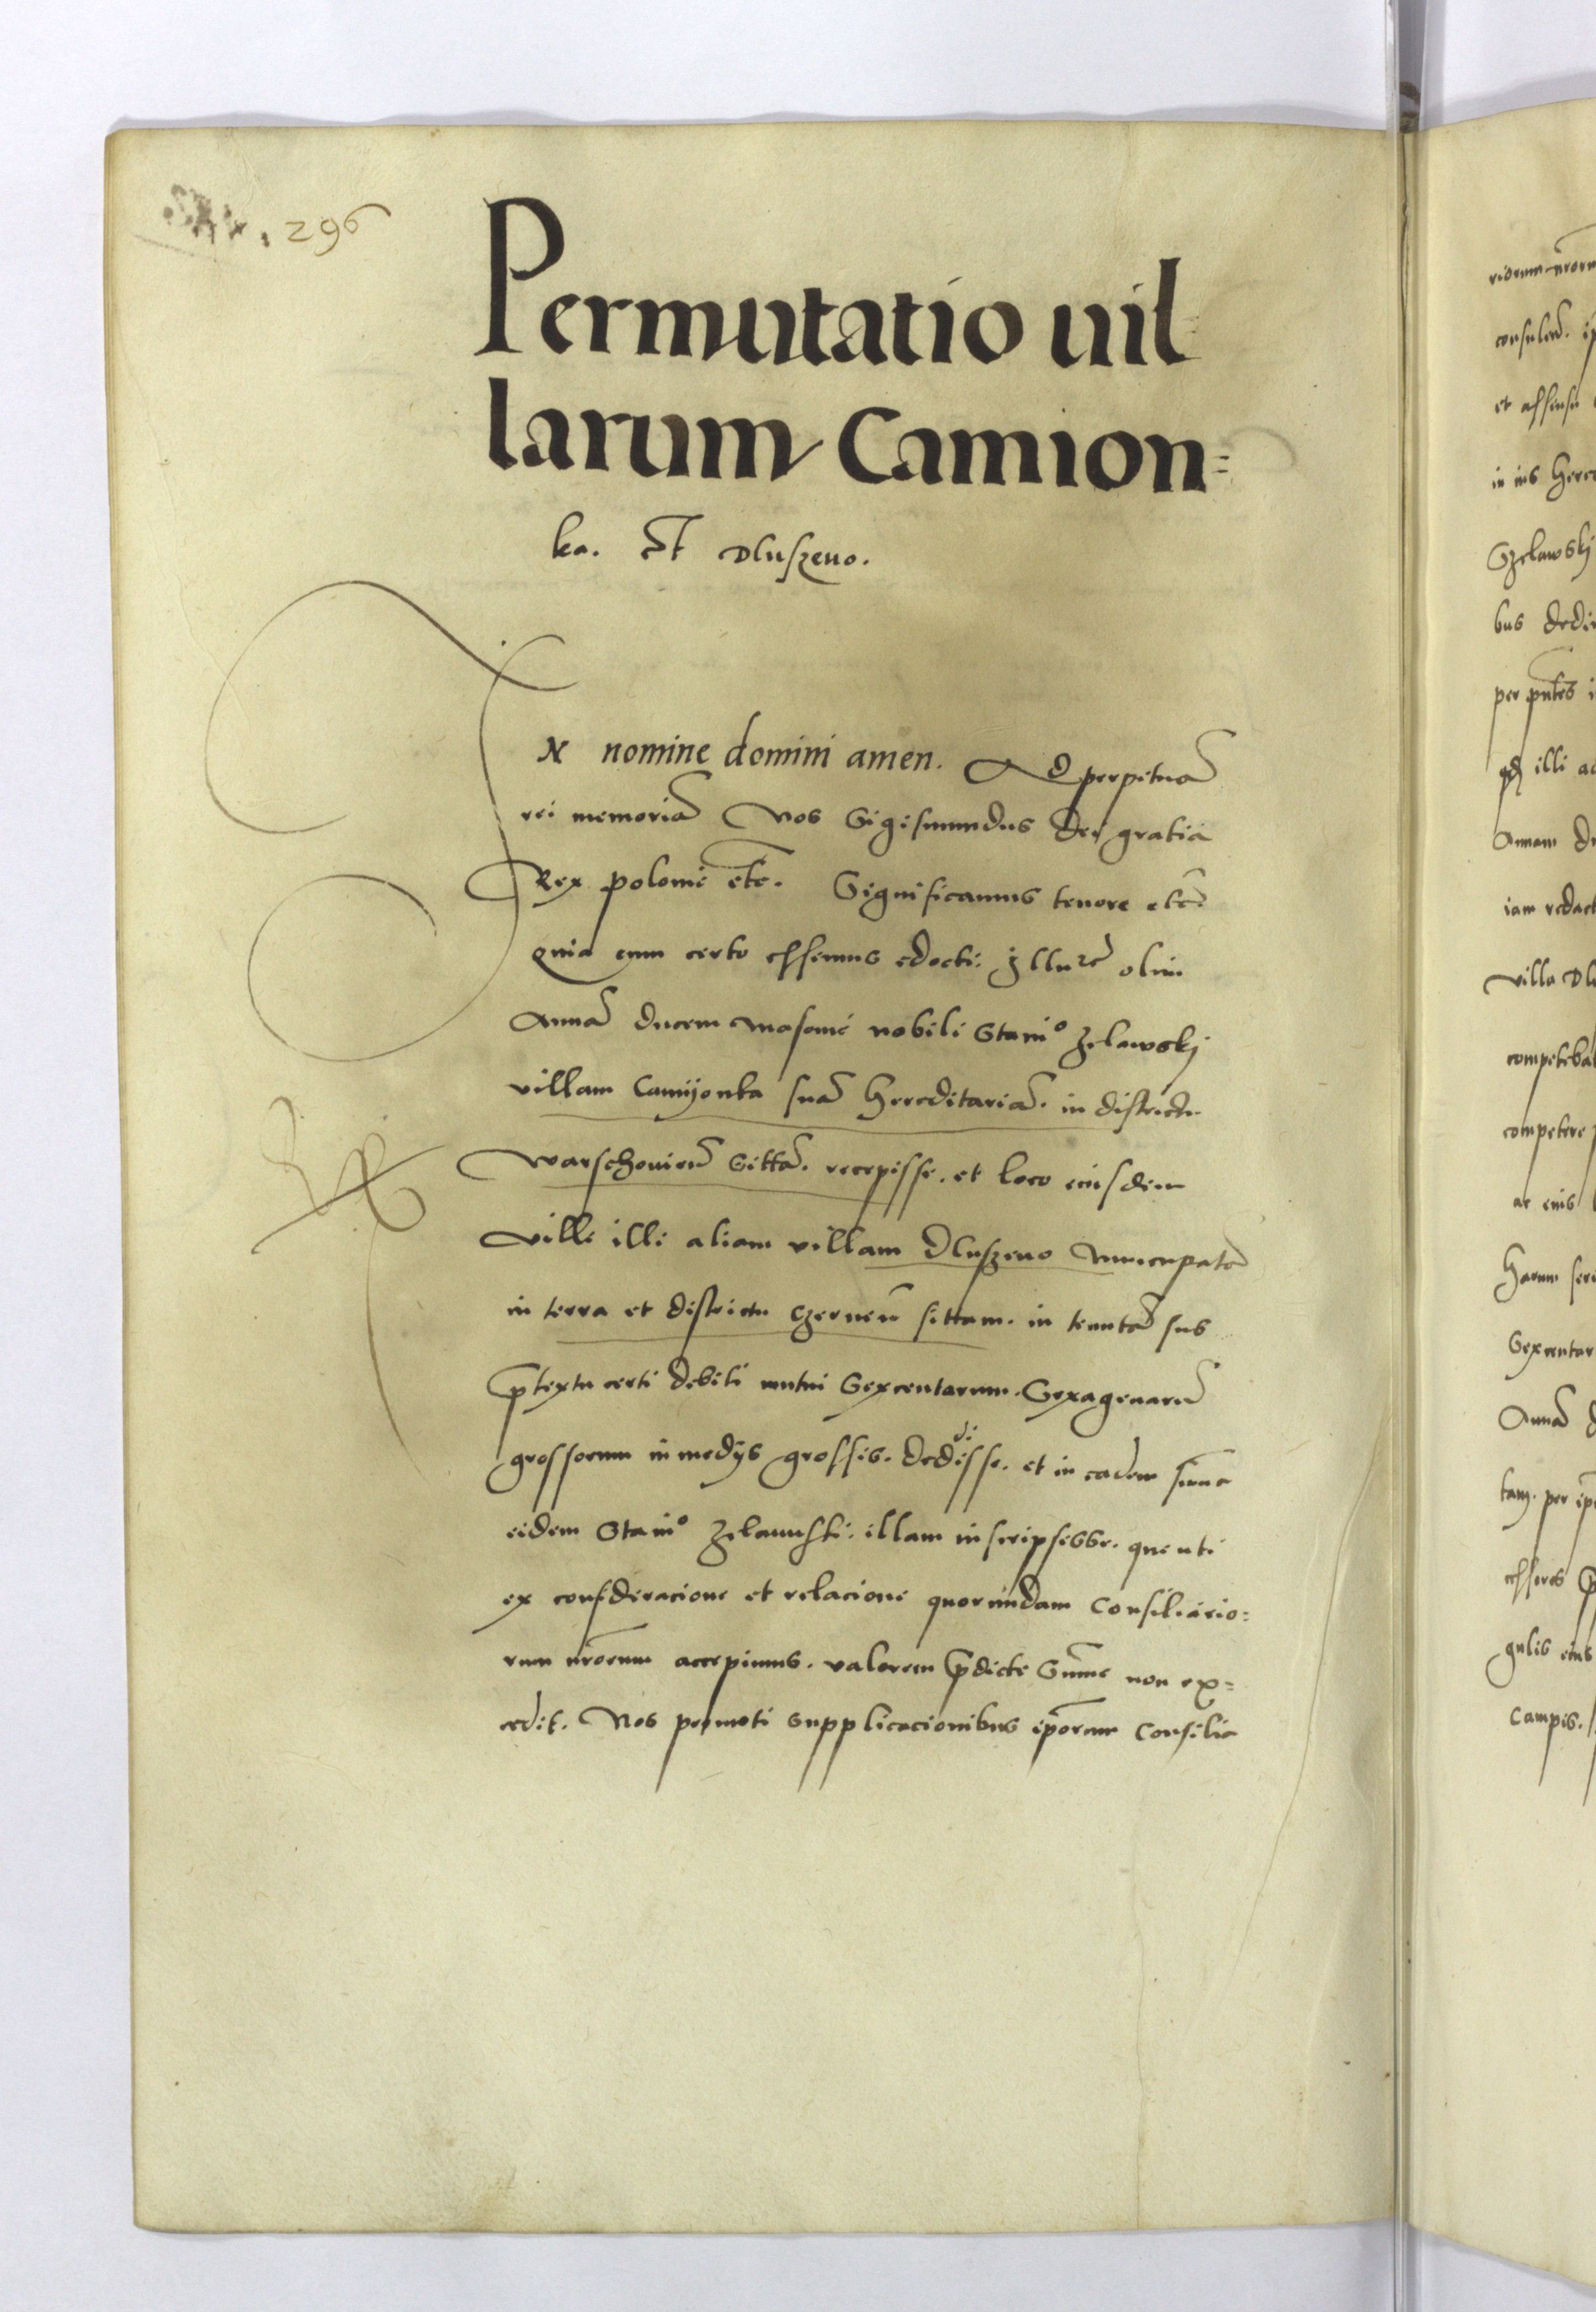 296
Permutatio uil
larum Camion=
ka. Et Dluszeuo.
IN nomine domini amen. Ad perpetuā
rei memoriā Nos Sigismundus dei gratia
Rex polonie etc̄. Significamus tenore etc̄
quia cum certo essemus edocti. Illūrē olim
Annā ducem Masouie nobili Stanio Zelawskj
villam Camijonka suā hereditariā. in districtu
Warschouien̄ Sittā. recepisse. et loco eiusdem
Ville illi aliam villam Dluszeuo nuncupatā
in terra et districtu Czernen̄ sittam. in tenutā sub
p̄textu certi debiti mutui Sexcentarum. Sexagenarū
grossorum in medijs grossis. dedidisse. et in eadem sum̄a
eidem Stanio Zelauuski. illam inscripsisse. que uti
ex consideracione et relacione quorundam Consiliario=
rum nr̄orum accepimus. valorem p̄dicte Sum̄e non ex=
cedit. Nos promoti supplicacionibus ip̄orum Consilia
riorum nrorum
et assensu
in ius
Gzelawskj
bus
per pn̄tes
illi
Annam
iam
villa
competebat
competere
ac eius
harum
Sexcentar
Annā
tam. per
gulis eius
Campis.